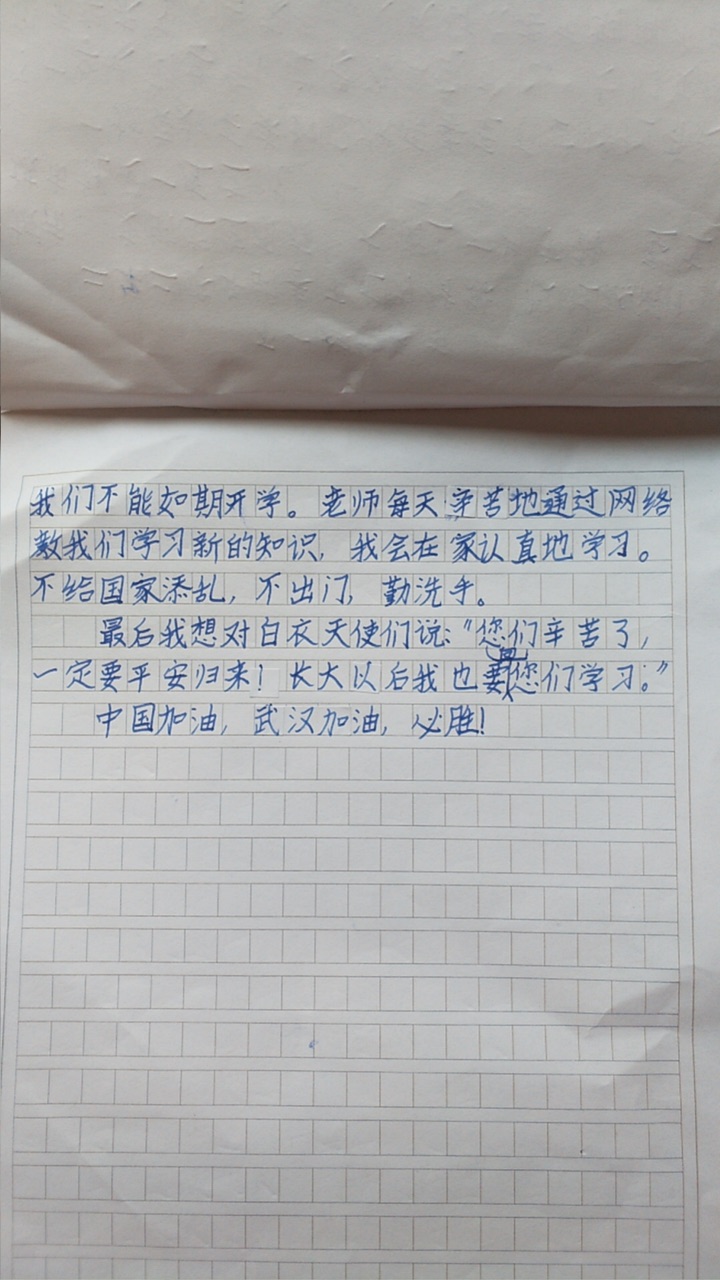 我们不能如期开学。老师每天辛苦地通过网络
教我们学习新的知识，我会在家认真地学习。
不给国家添乱，不出门，勤洗手。
最后我想对白衣天使们说：“您们辛苦了，
一定要平安归来！长大以后我也要向您们学习。”
中国加油，武汉加油，必胜！